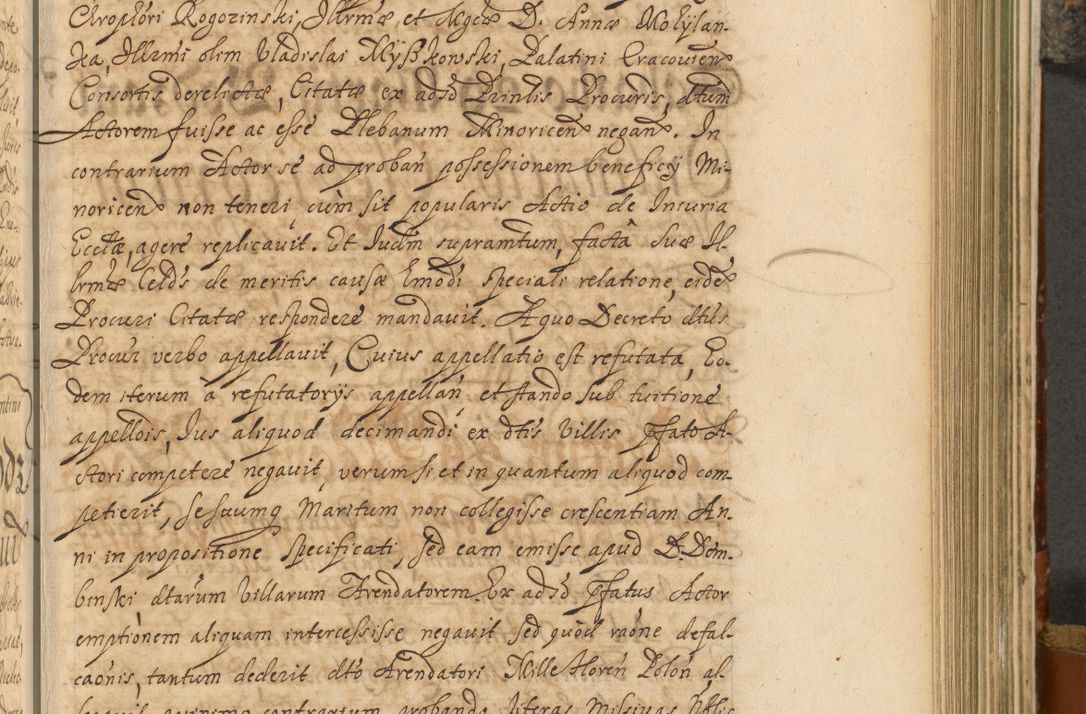 Chrophori Rogozinski, Illrmæ et Mgcæ D. Annæ Mohylan-
ka, Illrmi olim Vladislai Myßkowski, Palatini Cracovien
Consortis derelictæ, Citatæ ex adso Prinlis Procuris, dtum
Actorem fuisse ac esse Plebanum Minoricen negan. In
contrarium Actor se ad proban possessionem beneficy Mi-
noricen non teneri, cum sit popularis Actio de Incuria
Ecclæ, agere replicavit. Et Iudm supramtum, facta suæ Il-
lrmæ Celds de meritis causæ Emodi speciali relatione, eide
Procuri Citatæ respondere mandavit. A quo Decreto dtus
Procur verbo appellavit, Cuius appellatio est refutata, Eo-
dem iterum à refutatorys appellan et stando sub tuitione
appellois, Ius aliquod decimandi ex dtis Villis pfato A-
ctori competere negavit, verum si et in quantum aliquod com
petierit, se suumq Maritum non collegisse crescentiam An-
ni in propositione specificati, sed eam emisse apud D. Dem-
binski dtarum Villarum Arendatorem. Ex adso pfatus Actor
emptionem aliquam intercessisse negavit sed quod raone defal-
caonis, tantum dederit dto Arendatori Mille floren Polon al-
contrarium probando literas Missivas